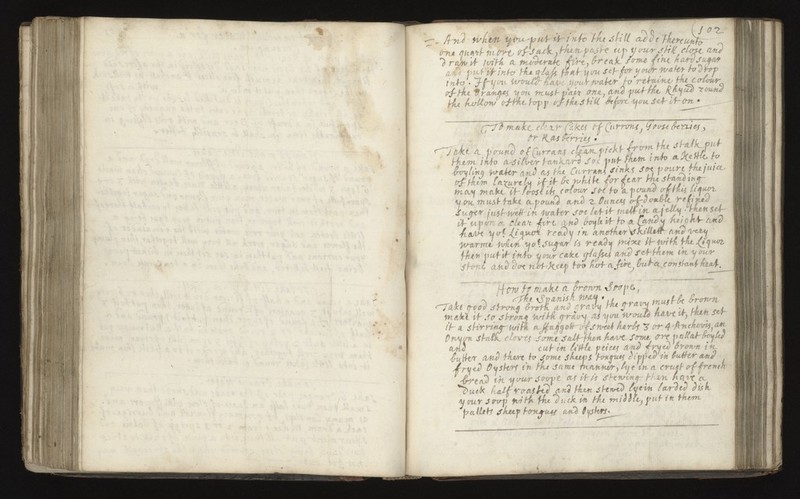 102
And when you put it into the still adde thereunto
one quart more of sack, then paste up your still close and
Draw it with a moderate fire, break some fine hard sugar
and put it into the glass that you set for your water to drop
into. If you would have your water to retaine the colour
of the Oranges you must pair one, and put the Rhynd round
the hollow of the topp of the still before you set it on.
To make clear Cakes of Currons, Gooseberries,
or Rasberries.
Take a pound of Currans clean pickt from the stalk put
them into a silver tankard soe put them into a Kettle to
boyling water and as the Currans sinks soe poure the juice
of them if it be white for fear the standing
may make it loose its colour soe to a pound of this liquor
you must take a pound and 2 Ounces of double refined
Suger just wett in water soe let it melt in a jelly then set
it upon a clear fire and boyle it to a Candy height and
have yor Liquor ready in another skillett and very
warme when yor sugar is ready mixe it with the Liquor
then put it into your cake glasses and set them in your
Stone and doe not keep too hot a fire, but a constant heat.
How to make a brown Soope,
The Spanish way.
Take good strong broth and gravy the gravy must be brown
make it so strong with gravy as you would have it, then set
it a stirring with a faggott of sweet herbs 3 or 4 Anchovis, an
Onyon stalk cloves some salt then have some, ox pallat boyled
and cut in little peices and fryed brown in
butter and there to some sheeps tongues dipped in butter and
fryed Oysters in the same manner, lye in a crust of french
bread in your soope as it is stewing than have a
Duck half roasted and then stewed lye in larded dish
your soop with the duck in the middle, put in them
pallets sheep tongues and Oysters.